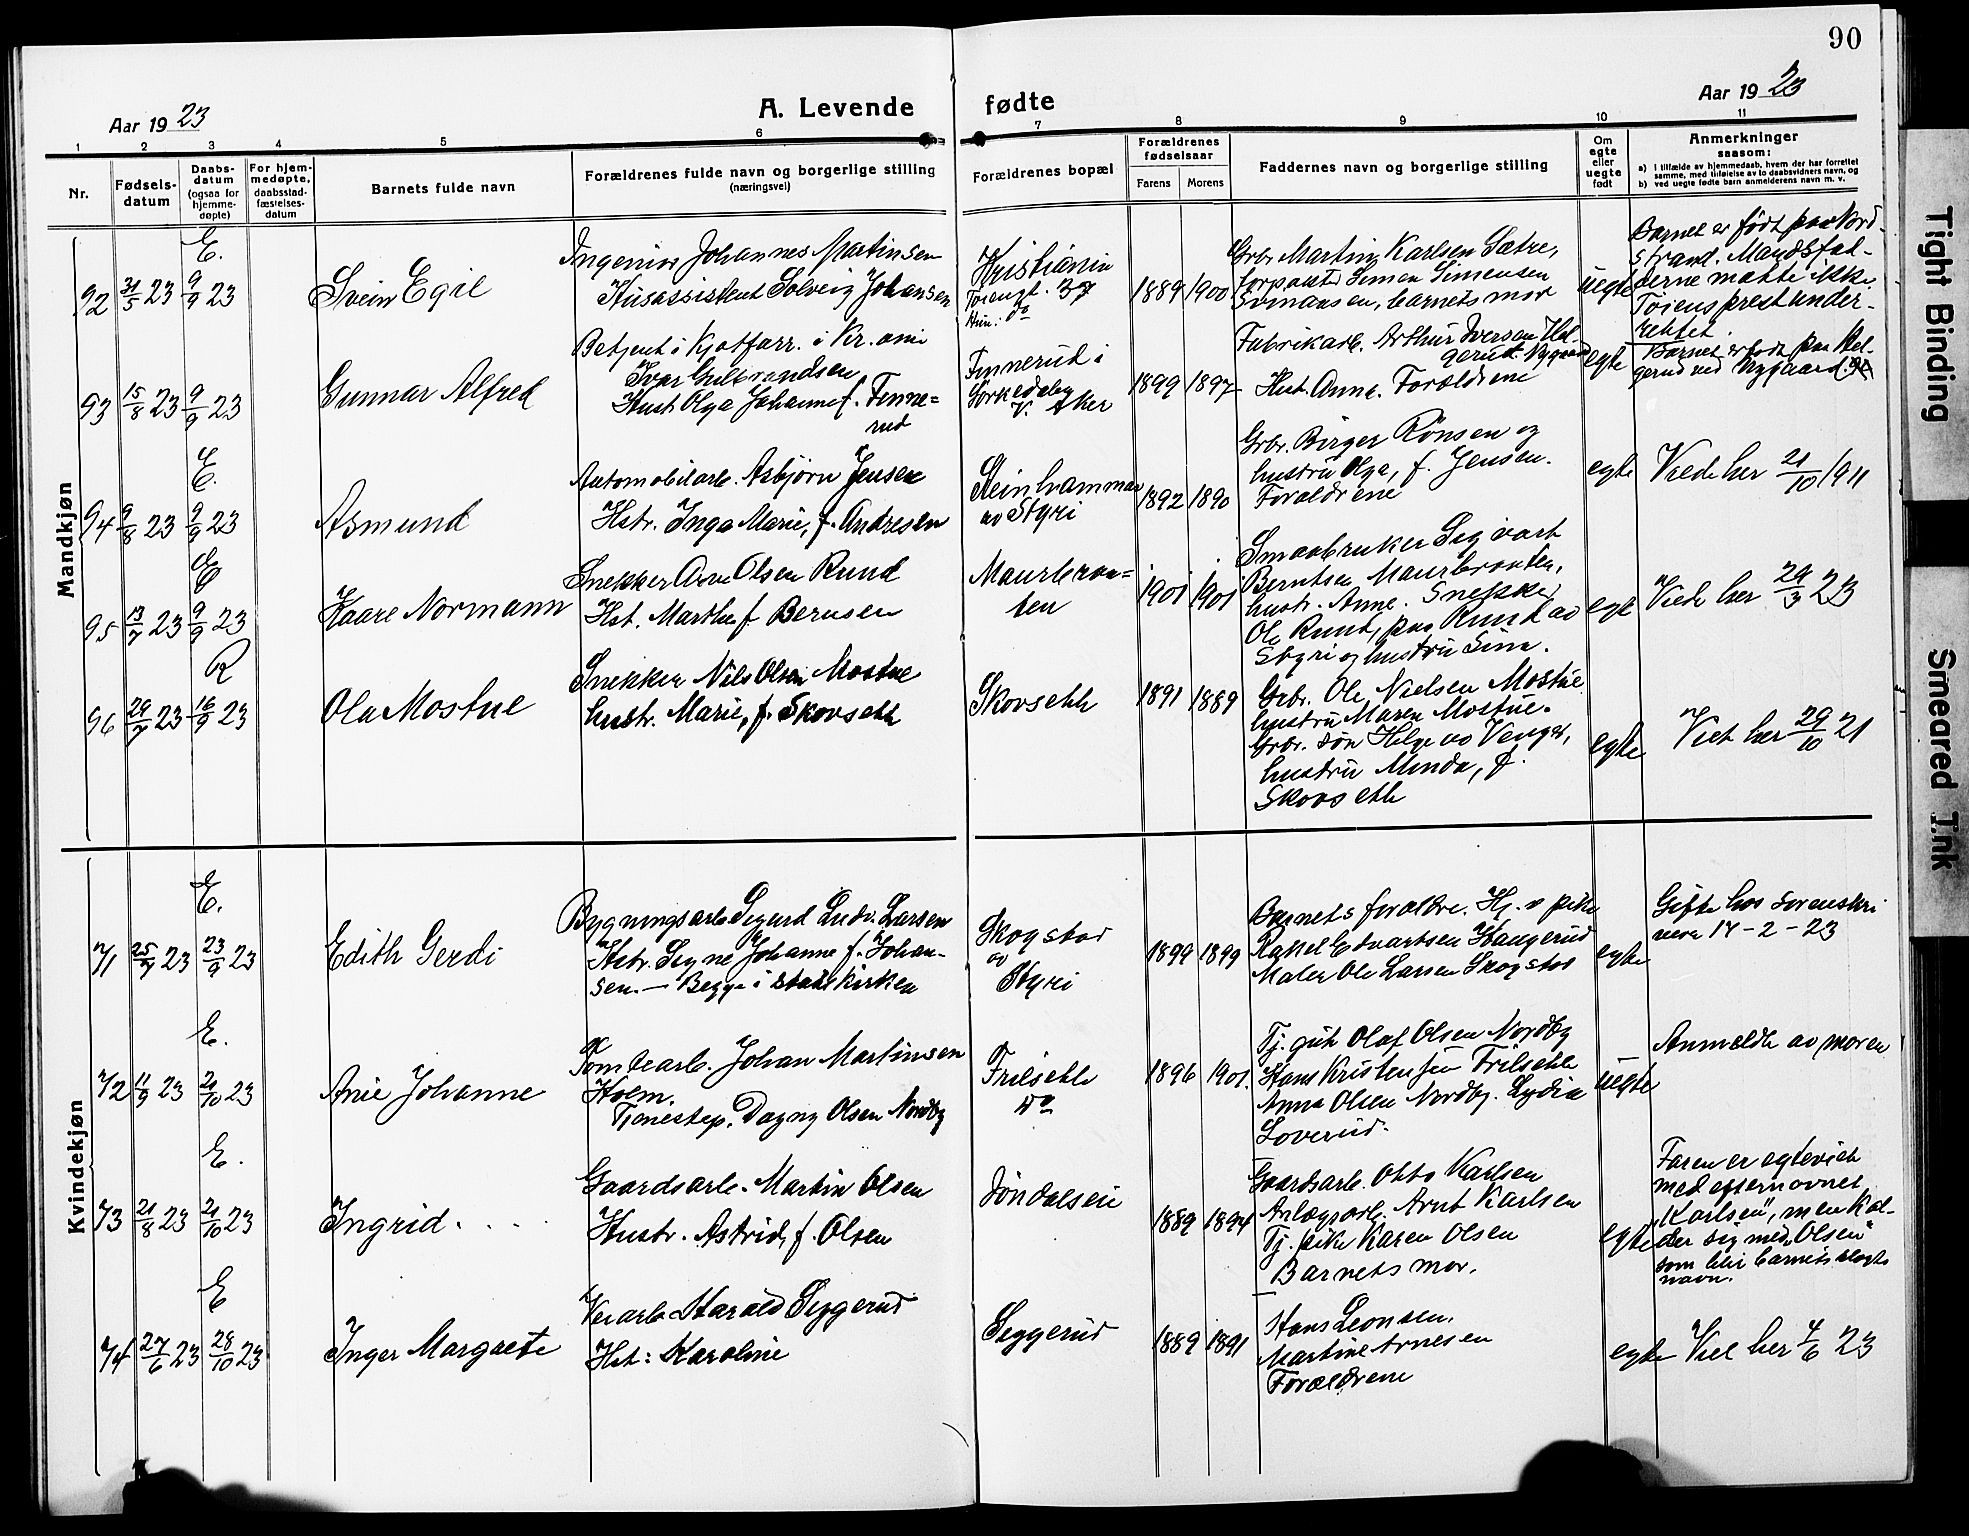 90
Aar 1923
A. Levende
fødte
Aar 1923
1 2 3 4 5 6 7 8 9 10 11
Nr.
Fødsels-
datum
Daabs-
datum
(ogsaa for
hjemme-
døpte)
For hjem-
medøpte,
daabsstad-
fæstelses-
datum
Barnets fulde navn
Forældrenes fulde navn og borgerlige stilling
(næringsvei)
Forældrenes bopæl
Forældrenes
fødselsaar
Farens
Morens
Faddernes navn og borgerlige stilling
Om
egte
eller
uegte
født
Anmerkninger
saasom:
a) i tilfælde av hjemmedaab, hvem der har forrettet
samme, med tilføielse av to daabsvidners navn, og
b) ved uegte fødte barn anmelderens navn m. v.
Mandkjøn
E.
92 31/5 23 9/9 23
Svein Egil
Ingeniør Johannes Martinsen
Husassistent Solveig Johansen
Kristiania
Tøiengt. 37
Hun: do
1889 1900
Grbr. Martin Karlsen Sætre,
forpakter Simen Simensen
Svensen, barnets mor
uegte
Barnet er født paa Nord-
strand. Mandsfad-
derne møtte ikke.
Tøiens prest under-
rettet.
93 15/8 23 9/9 23
Gunnar Alfred
Betjent i Kjøtforr. i Kr.ania
Ivar Gulbrandsen
Hust. Olga Johanne f. Finne=
rud
Finnerud i
Sørkedalen
V. Aker
1899 1897
Fabrikarb. Arthur Iversen Hel-
gerud Nygaard
Hust. Anna. Forældrene
egte
Barnet er født paa Hel-
gerud ved Nygaard
E.
94 9/8 23 9/9 23
Asmund
Automobilarb. Asbjørn Jensen
Hstr. Inga Marie, f. Andresen
Steinhammar
av Styri
1892 1890
Grbr. Birger Rønsen og
hustru Olga, f. Jensen.
Forældrene
egte
Viede her 21/10 1911
E
95 13/7 23 9/9 23
Kaare Normann
Snekker Arne Olsen Rund
Hst. Marthe f. Berntsen
Maurbraa=
ten
1901 1901
Smaabruker Sigvart
Berntsen Maurbraaten,
hustr. Anne. Snekker
Ole Rund, paa Rund av
Styri og hustru Sina.
egte
Viede her 29/3 23
R
96 29/7 23 16/9 23
Ola Mostue
Snekker Nils Olsen Mostue
hustr. Marie, f. Skovseth
Skovseth
1891 1889
Grbr. Ole Nielsen Mostue
hustru Maren Mostue.
Grbr. søn Helge av Venger,
hustru Minda, f.
Skovseth
egte
Viet her 29/10 21
Kvindekjøn
E.
71 25/7 23 23/9 23
Edith Gerdi
Bygningsarb. Sigurd Ludv. Larsen
Hstr. Signe Johanne f. Johan-
sen. — Begge i statskirken
Skogstad
av
Styri
1899 1899
Barnets forældre. Hj. v pike
Rakel Edvartsen Haugerud
Maler Ole Larsen Skogstad
egte
Gifte hos sorenskri
veren 14-2-23
E.
72 11/9 23 21/10 23
Anie Johanne
Tomtearb. Johan Martinsen
Holm.
Tjenestep. Dagny Olsen Nordby
Frilseth
do
1896 1901.
Tj. gut Olaf Olsen Nordby
Hans Kristensen Frilseth
Anna Olsen Nordby. Lydia
Loverud.
uegte
Anmeldt av moren
E.
73 21/8 23 21/10 23
Ingrid. . . .
Gaardsarb. Martin Olsen
Hustr. Astrid, f. Olsen
Jøndalseie
1889 1894
Gaardsarb. Otto Karlsen
Anlægsarb. Arnt Karlsen
Tj. pike Karen Olsen
Barnets mor.
egte
Faren er egteviet
med efternavnet
"Karlsen", men kal-
der sig med "Olsen"
som blir barnets slegts
navn.
E
74 27/6 23 28/10 23
Inger Margrete
Veiarb. Harald Seggerud
Hst: Karoline
Seggerud
1889 1891
Hans Leonsen,
Martine Arnesen
Forældrene
egte
Viet her 4/6 23
Tight Binding
Smeared Ink